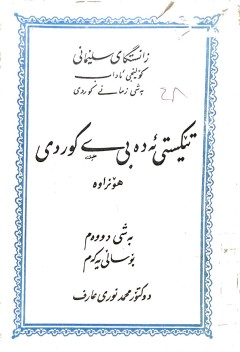 زانستگای سلێمانی
کولیجی ئاداب
بەشی زمانی کوردی
٤٨
تێکستی ئەدەبی ی کوردی
هۆنراوە
بەشی دووەم
بۆ سانی یەکەم
دوکتور محمد نوری عارف